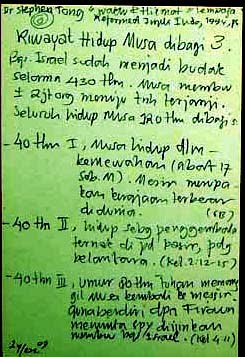 Dr Stephen Tong "Waktu & Hikmat" Lembaga
Reformed Injili Indo, 1994,
Riwayat Hidup Musa dibagi 3.
Bgs. Israel sudah menjadi budak
selama 430 thn. Musa membw
± 2 jt org menuju tnh terjanji.
Seluruh hidup Musa 120 thn dibagi:
- 40 th I, Musa hidup dlm
kemewahan (abad 17
Seb. M). Mesir merupa
kan kerajaan terbesar
di dunia.
- 40 th II, hidup sebg penggembala
ternak di pd pasir, pdg
belantara. (Kel. 2:12-15)
- 40 thn III, umur 80 th Tuhan memang
gil Musa kembali ke Mesir
guna berdiri dpn Firaun
meminta spy diijinkan
membw bgs Israel. (Kel 4:11)